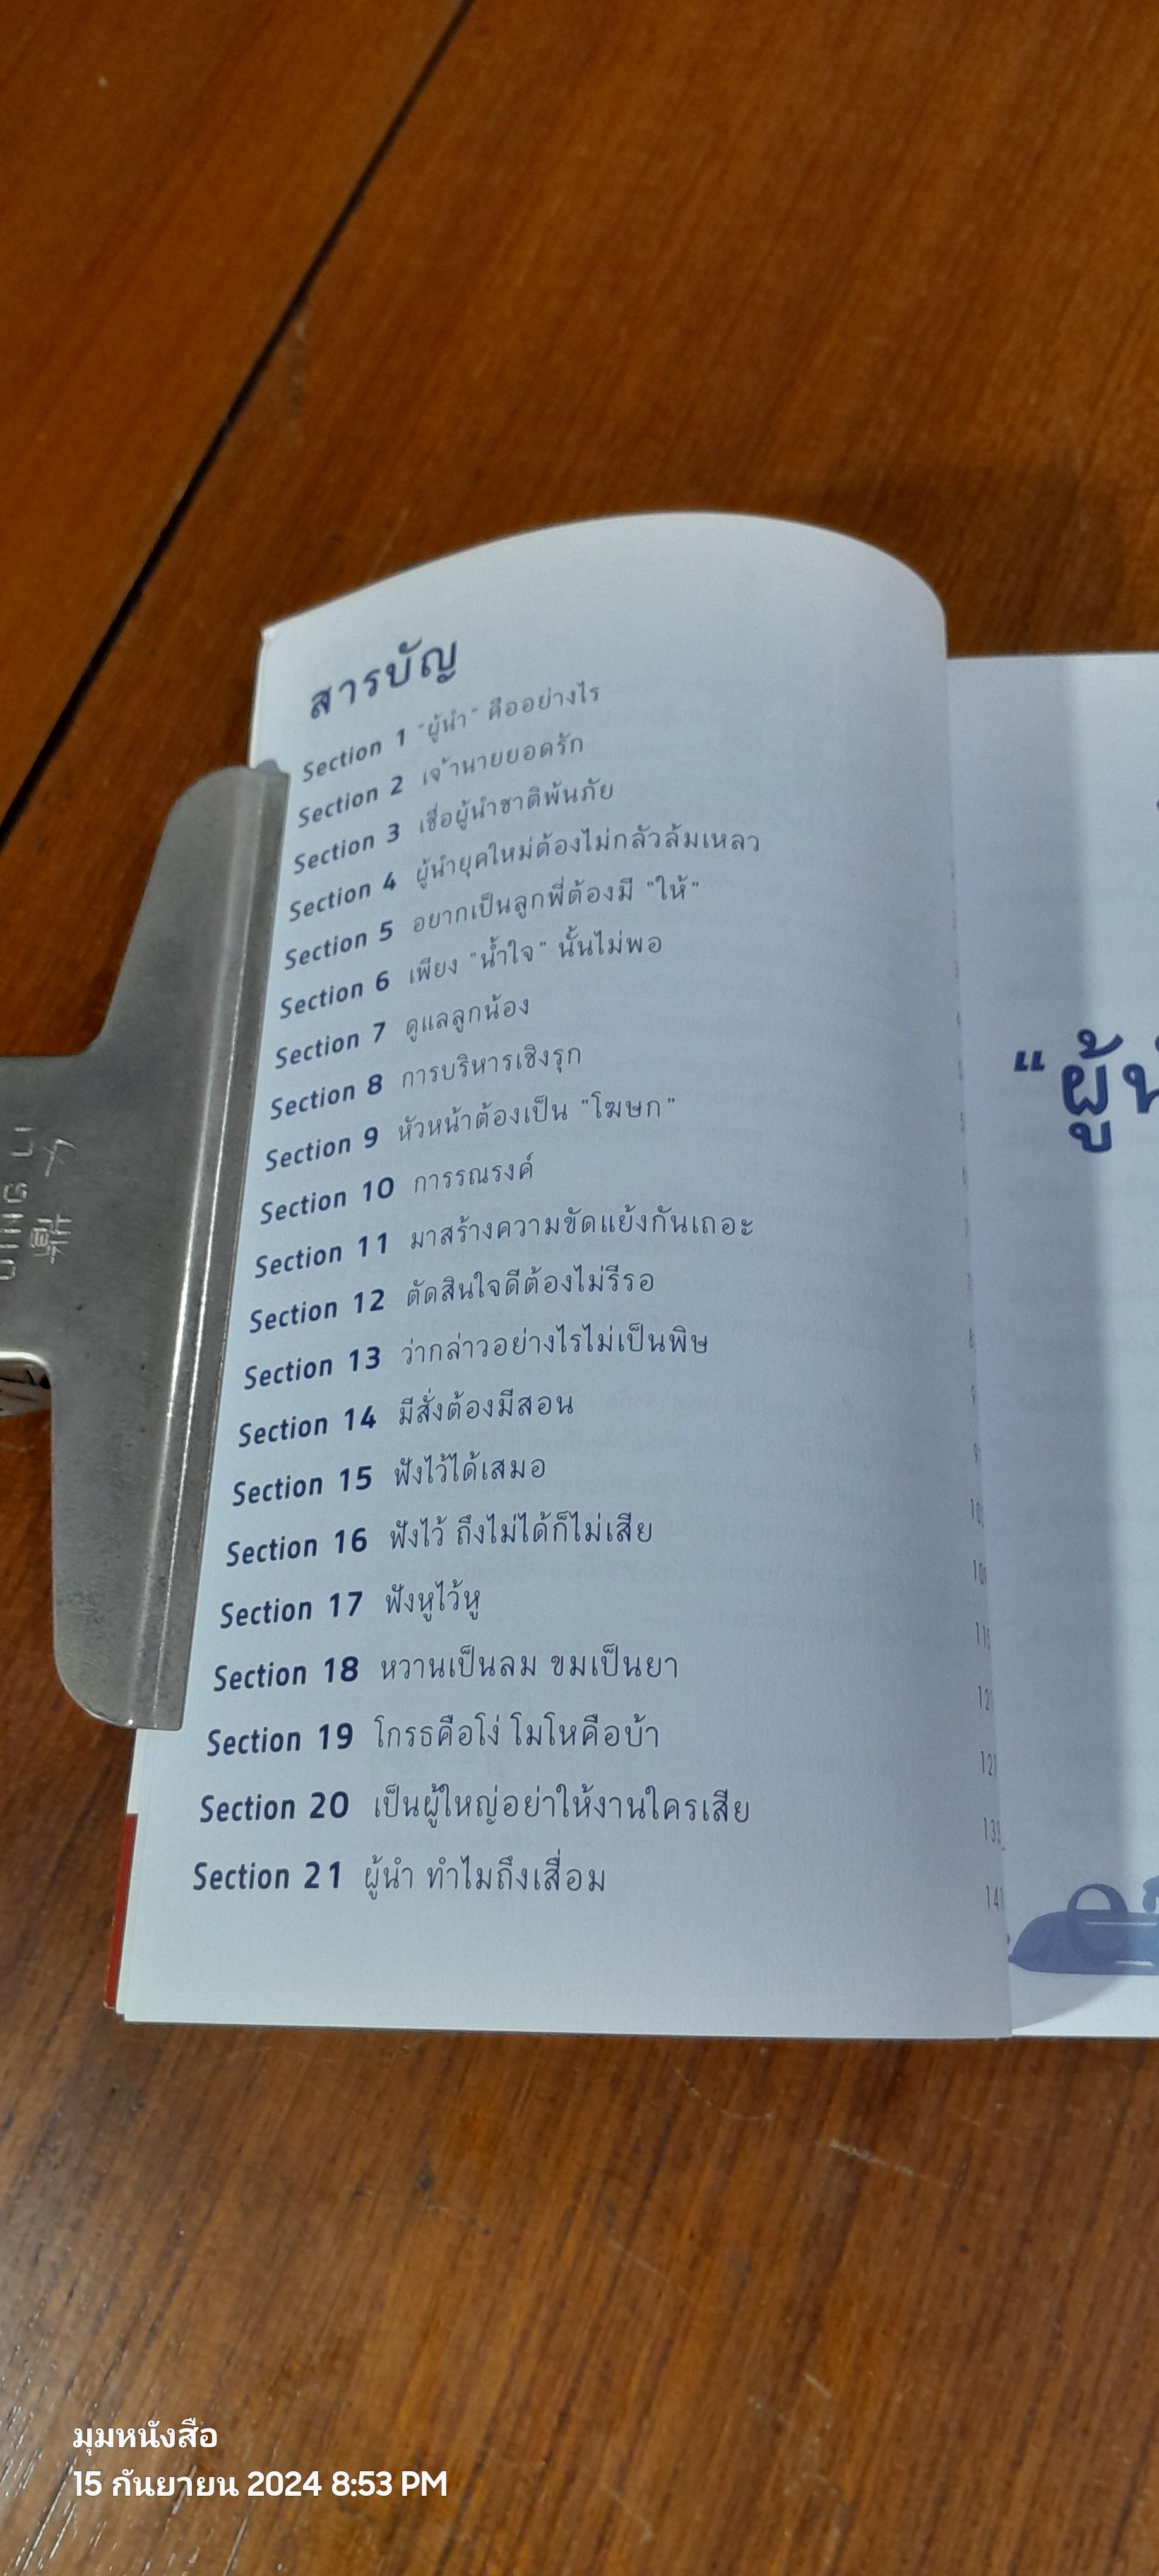 สารบัญ
Section 1 "ผู้นำ" คืออย่างไร
Section 2 เจ้านายยอดรัก
Section 3 เชื่อผู้นำชาติพ้นภัย
Section 4 ผู้นำยุคใหม่ต้องไม่กลัวล้มเหลว
Section 5 อยากเป็นลูกพี่ต้องมี "ให้"
Section 6 เพียง "น้ำใจ" นั้นไม่พอ
Section 7 ดูแลลูกน้อง
Section 8 การบริหารเชิงรุก
Section 9 หัวหน้าต้องเป็น "โฆษก"
Section 10 การรณรงค์
Section 11 มาสร้างความขัดแย้งกันเถอะ
Section 12 ตัดสินใจดีต้องไม่รีรอ
Section 13 ว่ากล่าวอย่างไรไม่เป็นพิษ
Section 14 มีสั่งต้องมีสอน
Section 15 ฟังไว้ได้เสมอ
Section 16 ฟังไว้ ถึงไม่ได้ก็ไม่เสีย
Section 17 ฟังหูไว้หู
Section 18 หวานเป็นลม ขมเป็นยา
Section 19 โกรธคือโง่ โมโหคือบ้า
Section 20 เป็นผู้ใหญ่อย่าให้งานใครเสีย
Section 21 ผู้นำ ทำไมถึงเสื่อม
"ผู้น
มุมหนังสือ
15 กันยายน 2024 8:53 PM